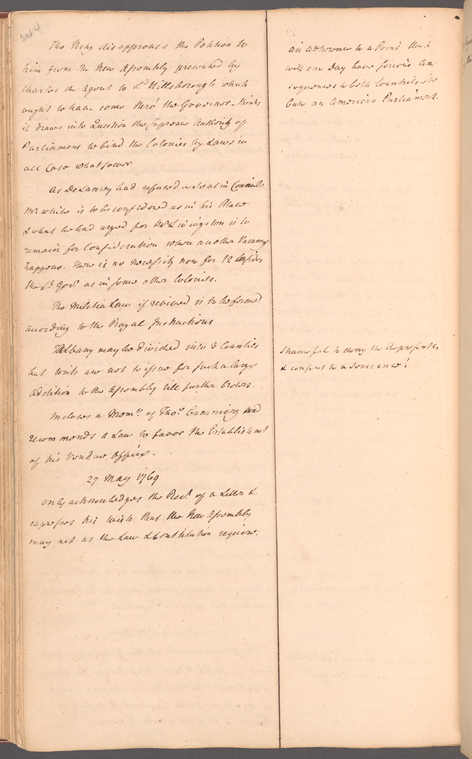 The King disapproves the Petition to
him from the New Assembly presented by
Charles the Agent to Ld Hillsborough which
ought to have come thro' the Governor - thinks
it draws into Question the supreme Authority of
Parliament to bind the Colonies by Laws in
all Cases whatsoever.
As DeLancey had refused a Seat in Council
Mr White is to be considered as in his Place
& what he had urged for Mr Livingston is to
remain for Consideration when another Vacancy
happens. There is no Necessity now for 12 besides
the Lt Govr as in some other Colonies.
The Militia Law if revived is to be formed
according to the Royal Instructions
Albany may be divided into 3 Counties
but Writs are not to issue for such a large
addition to the Assembly till further Orders.
Incloses a Meml of Thos
recommends a Law to favor the Establishment
of his Vendue Office.
27 May 1769
only acknowledges the Rect of a Letter &
expresses his Wish that the New Assembly
may act as the Law & Constitution require.
an adherence to a Point that
will one Day have serious Con
sequences to both Countries
an American Parliament.
Shameful to deny the
& consent to a Severance!